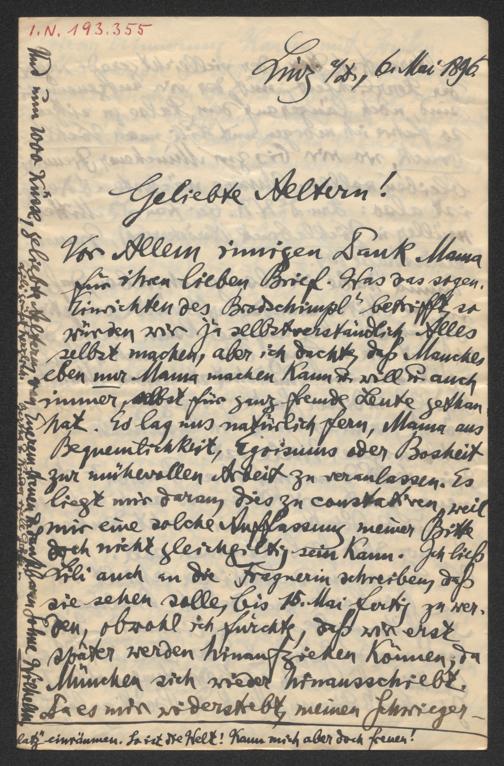 I.N. 193.355
Linz a/D., 6. Mai 1896.
Geliebte Aeltern!
Vor Allem innigen Dank Mama
für ihren lieben Brief. Was das sogen.
"Einrichten des Brodschimpl" betrifft, so
würden wir ja selbstverständlich Alles
selbst machen, aber ich dachte, daß Manches
eben nur Mama machen kann u. will u. auch
immer, selbst für ganz fremde Leute gethan
hat. Es lag uns natürlich fern, Mama aus
Bequemlichkeit, Egoismus oder Bosheit
zur mühevollen Arbeit zu veranlassen. Es
liegt mir daran, dies zu constatiren, weil
mir eine solche Auffassung meiner Bitte
doch nicht gleichgiltig sein kann. Ich ließ
Lili auch an die Fragnerin schreiben, daß
sie sehen solle, bis 15. Mai fertig zu wer-
den, obwohl ich fürchte, daß wir erst
später werden hinaufziehen können, da
München sich wieder hinausschiebt.
Da es mir widerstrebt, meinen Schwieger-
platz" einräumen. So ist die Welt! Kann mich aber doch freuen!
Und nun 1000 Küsse, geliebte Aeltern, von Eurem treuen u. dankbaren Sohne